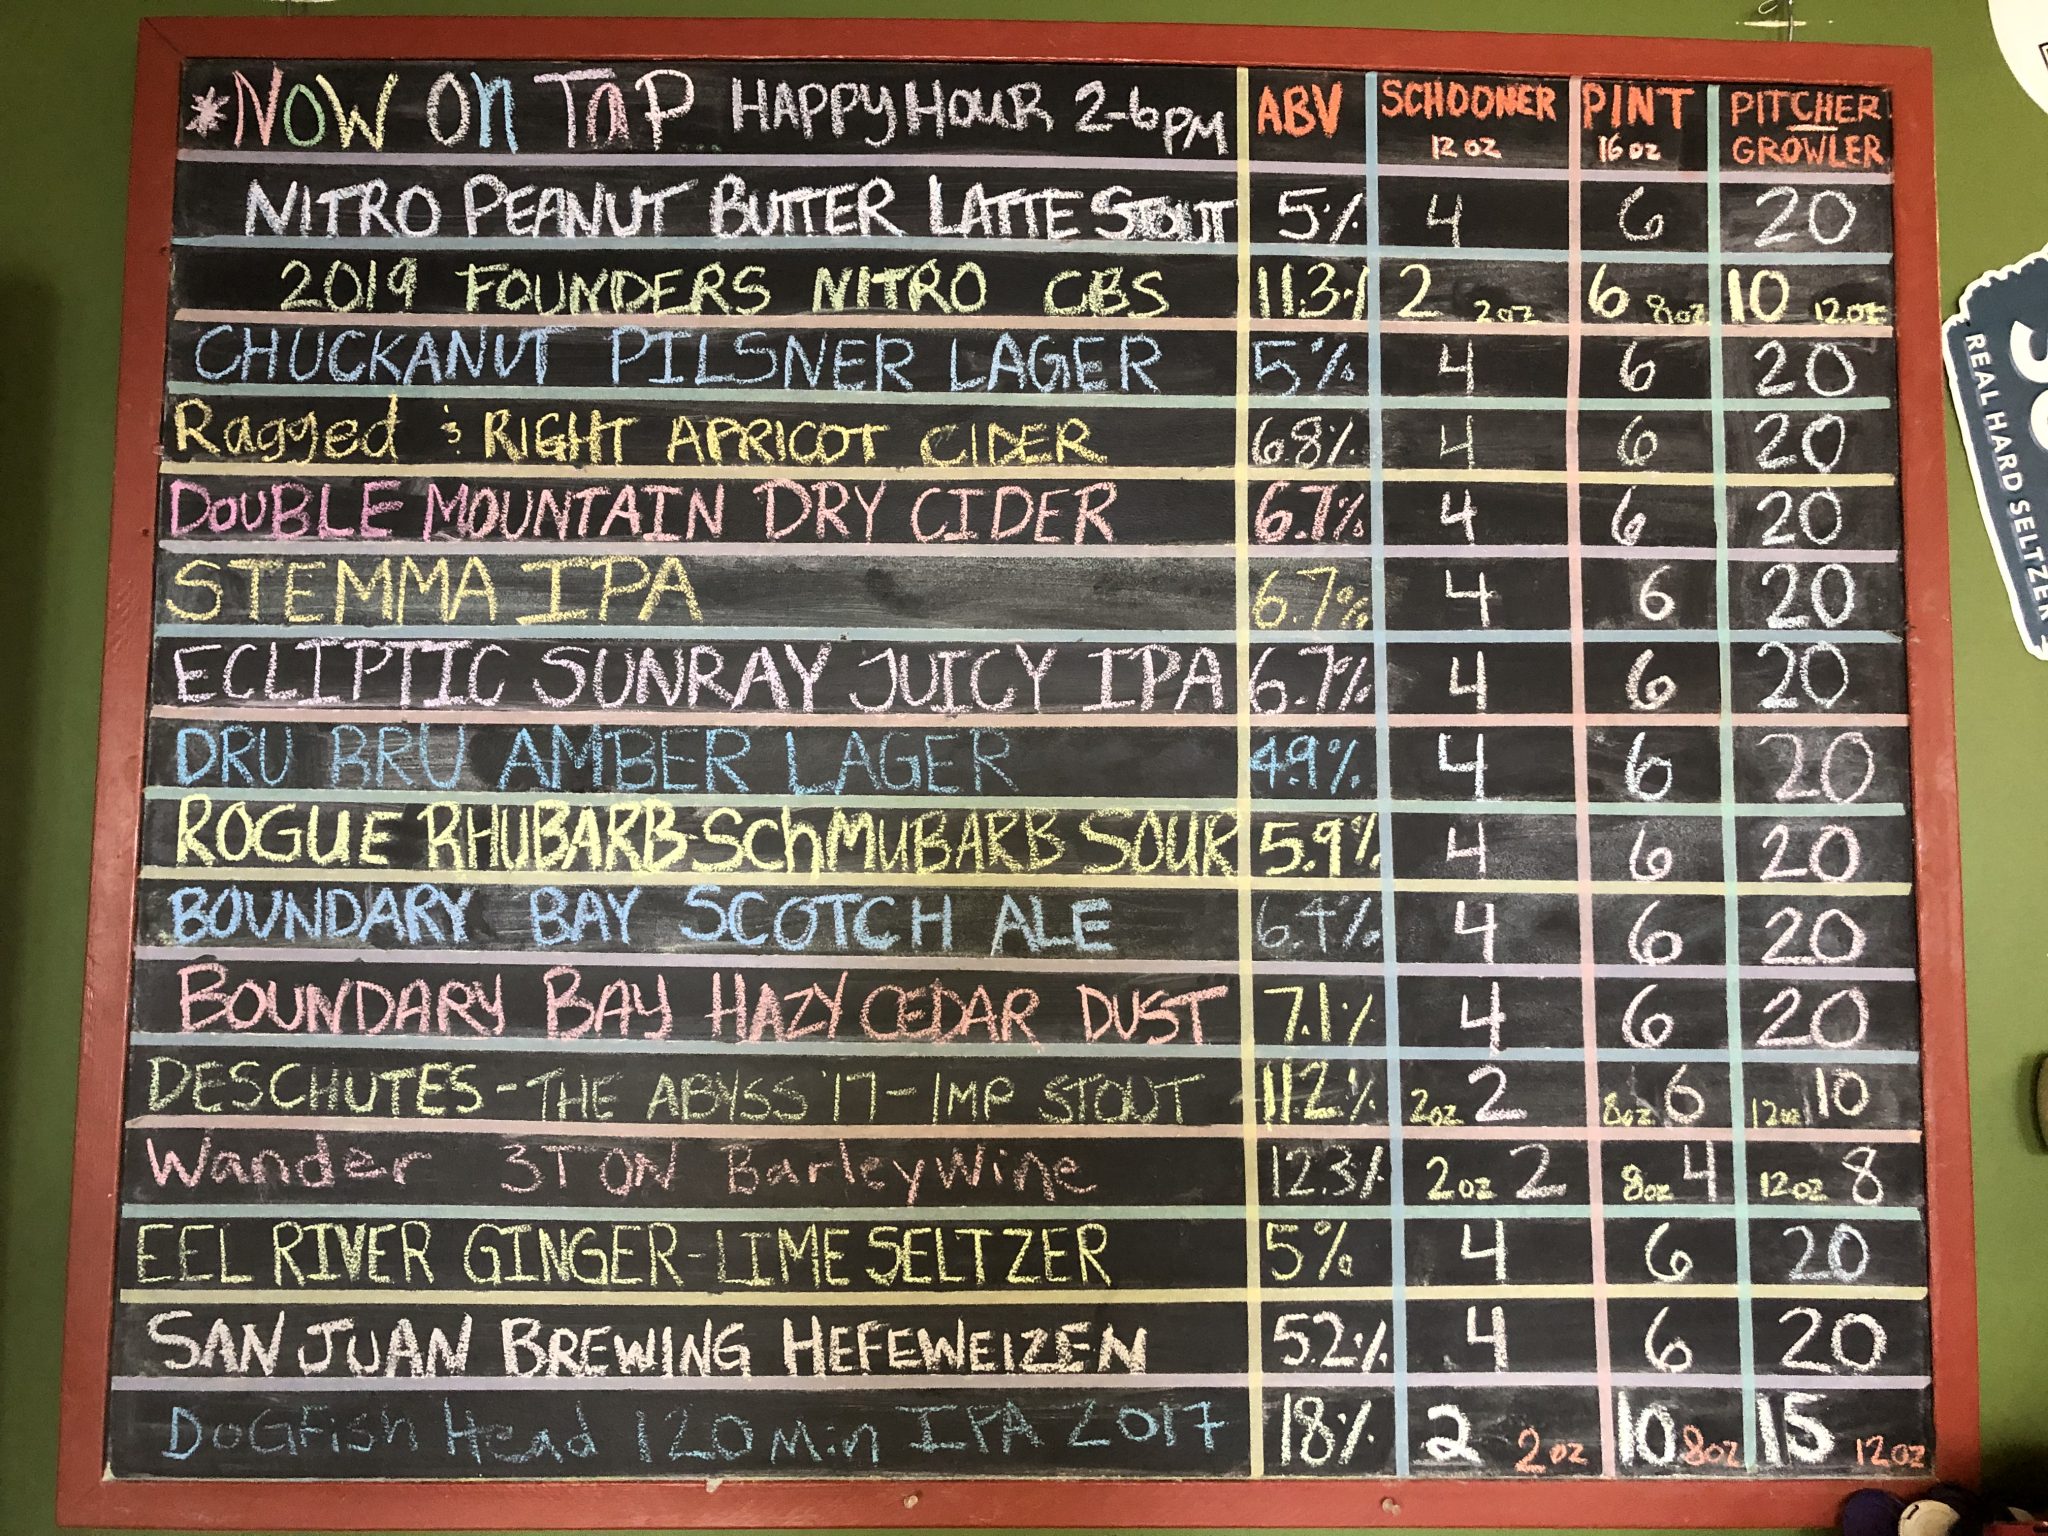 *NOW ON TAP HAPPY HOUR 2-6PM ABV SCHOONER 12 oz PINT 16 oz PITCHER GROWLER
NITRO PEANUT BUTTER LATTE STOUT 5% 4 6 20
2019 FOUNDERS NITRO CBS 11.3% 2 2oz 6 8oz 10 12oz
CHUCKANUT PILSNER LAGER 5% 4 6 20
Ragged & RIGHT APRICOT CIDER 6.8% 4 6 20
DOUBLE MOUNTAIN DRY CIDER 6.7% 4 6 20
STEMMA IPA 6.7% 4 6 20
ECLIPTIC SUNRAY JUICY IPA 6.7% 4 6 20
DRU BRU AMBER LAGER 4.9% 4 6 20
ROGUE RHUBARB-SCHMUBARB SOUR 5.9% 4 6 20
BOUNDARY BAY SCOTCH ALE 6.4% 4 6 20
BOUNDARY BAY HAZY CEDAR DUST 7.1% 4 6 20
DESCHUTES - THE ABYSS '17 - IMP STOUT 11.2% 2oz 2 8oz 6 12oz 10
Wander 3TON BarleyWine 12.3% 2oz 2 8oz 4 12oz 8
EEL RIVER GINGER-LIME SELTZER 5% 4 6 20
SAN JUAN BREWING HEFEWEIZEN 5.2% 4 6 20
DOGFISH Head 120 Min IPA 2017 18% 2 2oz 10 8oz 15 12oz
REAL HARD SELTZER